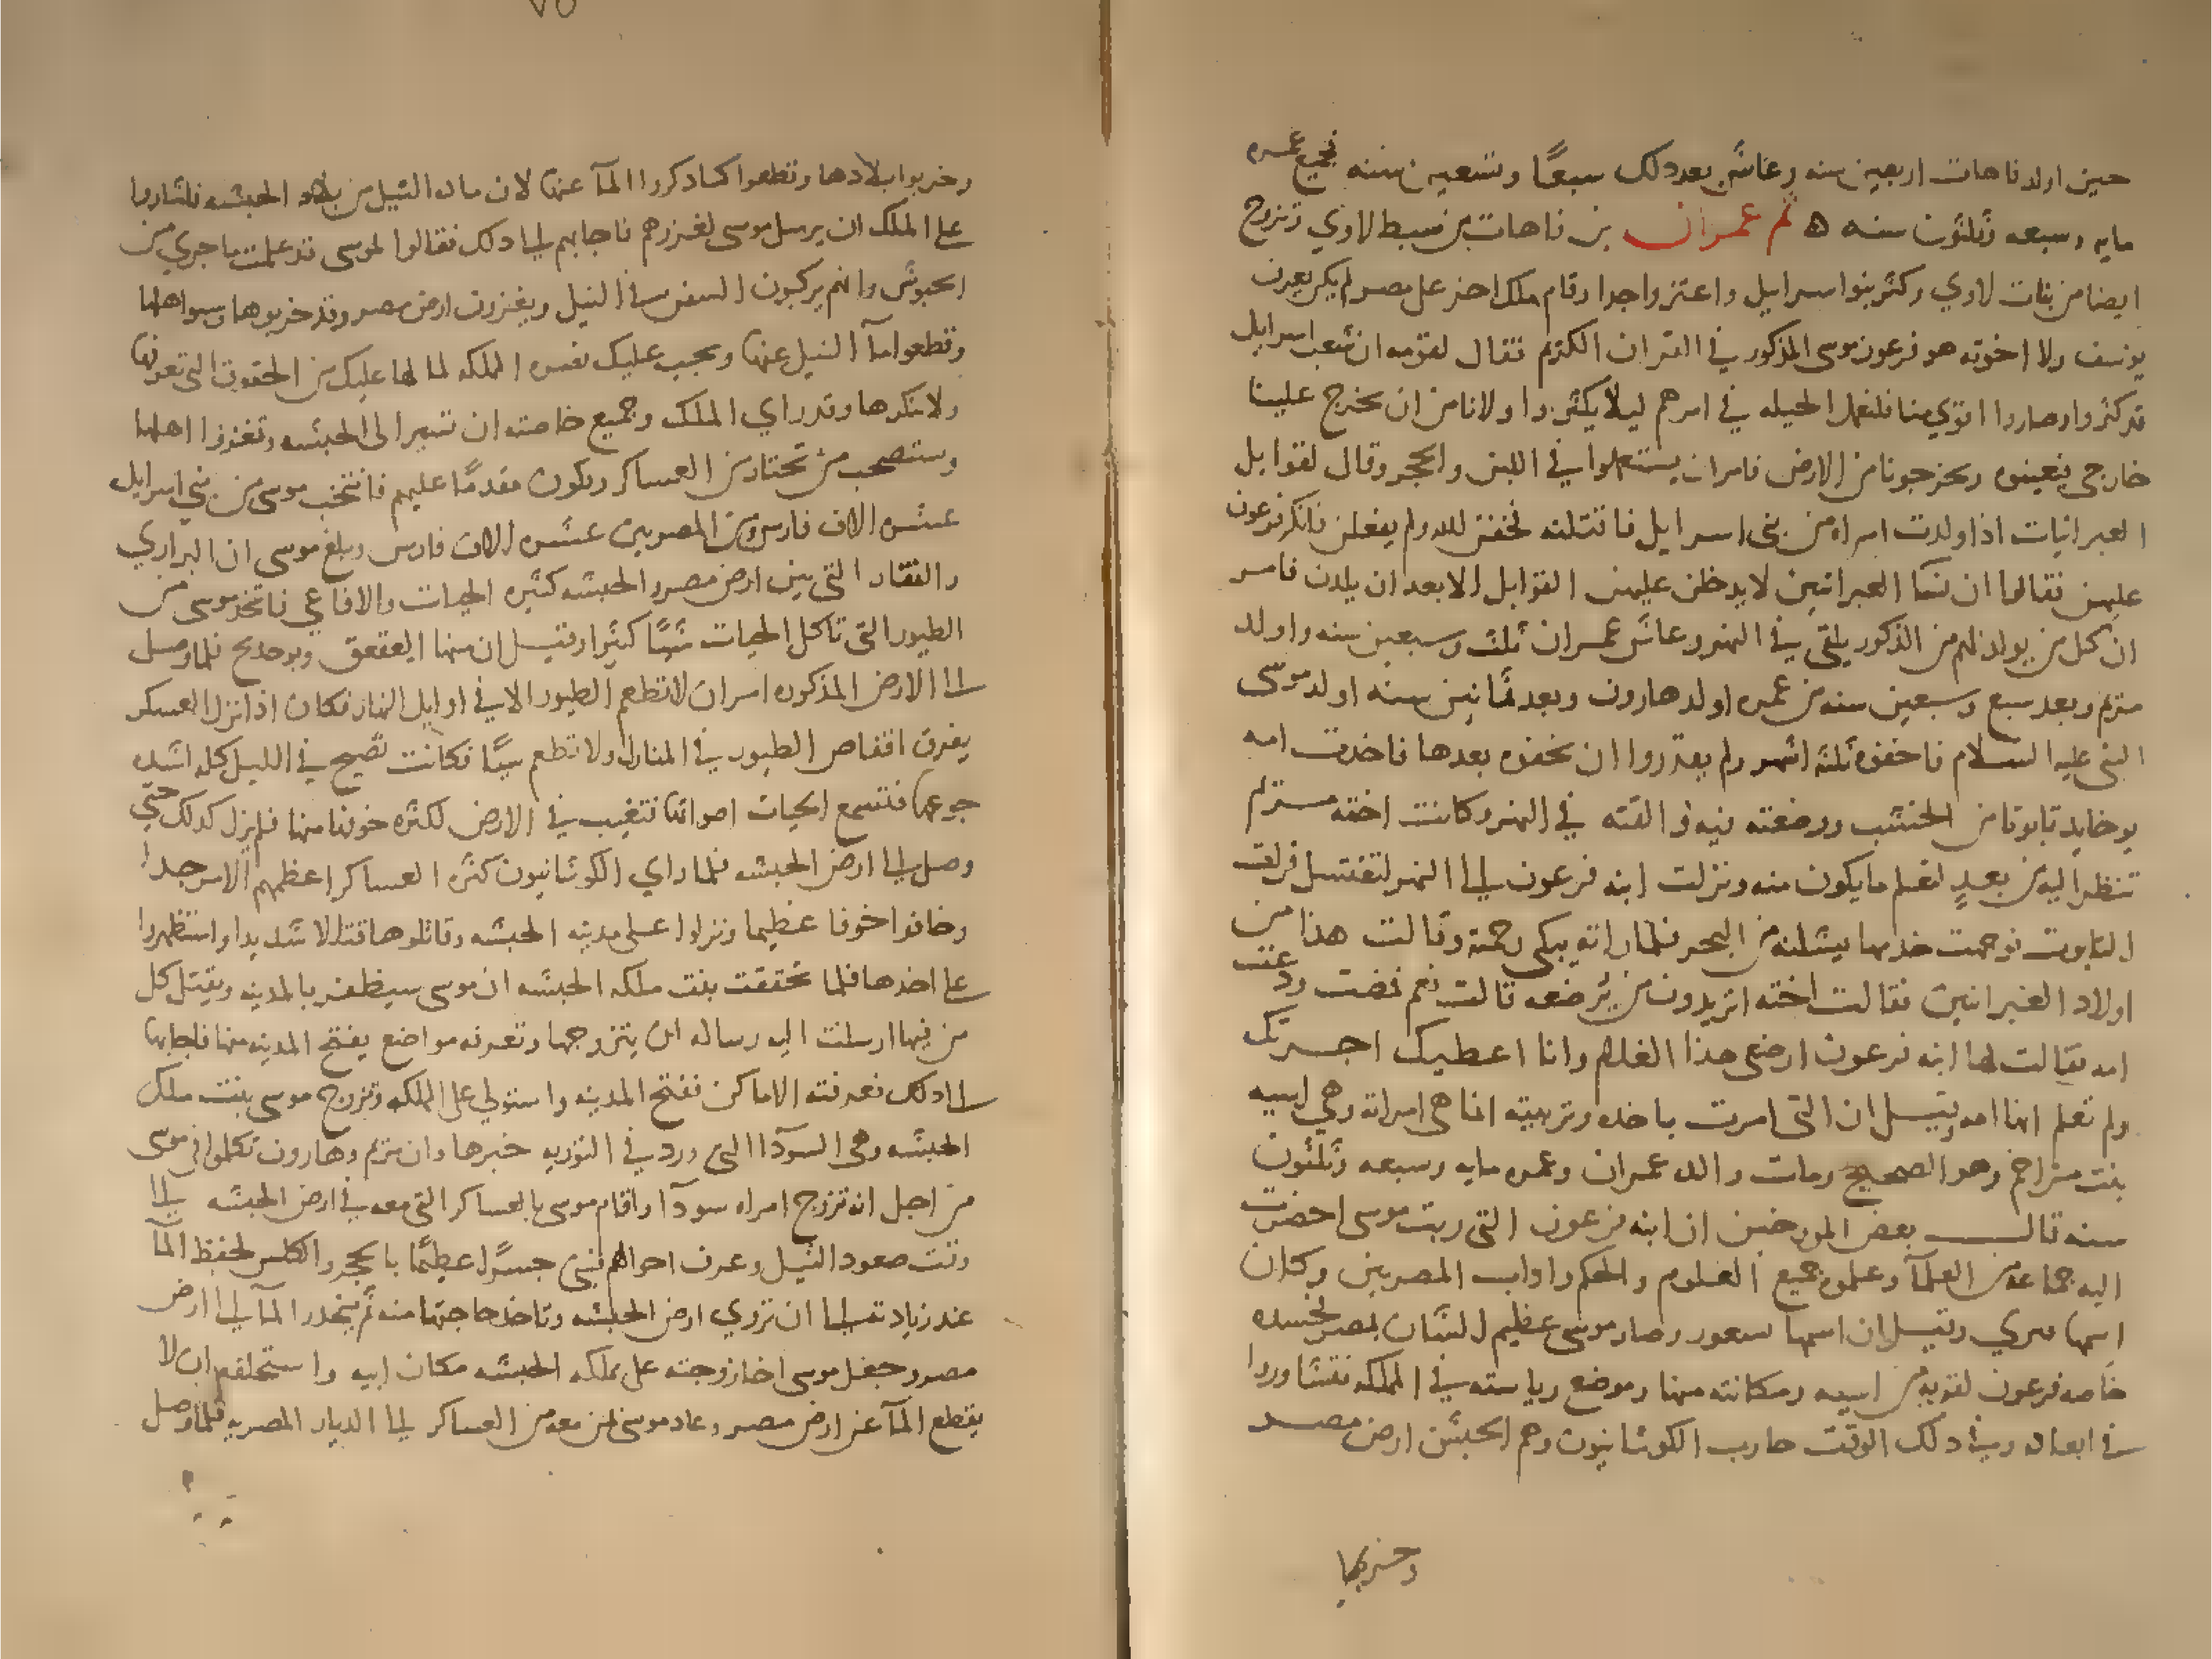 حين اولد ناهات اربعين سنه وعاش بعد دلك سبعًا وتسعين سنه فجميع عمره
مايه وسبعه وثلثون سنه ه ثم عمران بن ناهات من سبط لاوي تزوج
ايضا من بنات لاوي وكثر بنوا اسرايل واعتز واجدا وقام ملك اخر على مصر لم يكن يعرف
يوسف ولا اخوته هو فرعون موسى المذكور في القران الكريم فقال لقومه ان شعب اسرايل
قد كثروا وصاروا اقوي منا فلنعمل الحيله في امرهم ليلا يكثروا ولانامن ان يخرج علينا
خارجي فيعينوه ويخرجونا من الارض فامر ان يستعملوا في اللبن والحجر وقال لقوابل
العبرانيات اذا ولدت امراه من بني اسرايل فاقتلنه فخفن الله ولم يفعلن فانكر فرعون
عليهن فقالوا ان نسا العبرانين لا يدخلن عليهن القوابل الا بعد ان يلدن فامر
ان كل من يولد لهم من الذكور يلقى في النهر وعاش عمران ثلث وسبعين سنه واولد
مريم وبعد سبع وسبعين سنه من عمره اولد هارون وبعد ثمانين سنه اولد موسى
النبي عليه السلام فاخفوه ثلثة اشهر ولم يقدروا ان يخفوه بعدها فاخدت امه
يوخابد تابوتا من الخشب ووضعته فيه والقته في النهر وكانت اخته مريم
تنظر اليه من بعدٍ لتعلم ما يكون منه ونزلت ابنه فرعون الى النهر لتغتسل فرات
التابوت فوجهت خدمها ينشلنه من البحر فلما راته يبكي رحمته وقالت هذا من
اولاد العبرانين فقالت اخته اتريدون من يرضعه قالت نعم فمضت ودعت
امه فقالت لها ابنه فرعون ارضعي هذا الغلام وانا اعطيك اجرتك
ولم تعلم انها امه وقيل ان التي امرت باخده وتربيته انما هي امراته وهي اسيه
بنت مزاحم وهو الصحيح ومات والده عمران وعمره مايه وسبعه وثلثون
سنه قال بعض المورخين ان ابنه فرعون التي ربت موسى احضرت
اليه جماعه من العلمآ وعلموه جميع العلوم والحكم واداب المصريين وكان
اسمها سري وقيل ان اسمها سعور وصار موسى عظيم الشان بمصر فحسده
خاصه فرعون لقربه من اسيه ومكانته منها وموضع رياسته في المملكه فتشاوروا
في ابعاده وفي دلك الوقت حارب الكوشانيون وهم الحبش ارض مصر
وخربوا
وخربوا بلادها وقطعوا كما دكروا المآ عنها لان ماده النيل من بلاد الحبشه فاشاروا
على الملك ان يرسل موسى لغزوهم فاجابهم الى دلك فقالوا لموسى قد علمت ما جري من
الحبوش وانهم يركبون السفن في النيل ويغزون ارض مصر وقد خربوها وسبوا اهلها
وقطعوا مآ النيل عنها ويجب عليك نصره المملكه لما لها عليك من الحقوق التي تعرفها
ولا تنكرها وقد راي الملك وجميع خاصته ان تسير الى الحبشه وتغزوا اهلها
وستصحب من تختار من العساكر وتكون مقدمًا عليهم فانتخب موسى من بني اسرايل
عشره الاف فارس ومن المصريين عشره الاف فارس وبلغ موسى ان البراري
والقفار التي بين ارض مصر والحبشه كثيره الحيات والافاعي فاتخد موسى من
الطيور التي تاكل الحيات شيًا كثيرا وقيل ان منها العقعق وبوحديح فلما وصل
الى الارض المذكوره امر ان لا تطعم الطيور الا في اوايل النهار فكان اذا نزل العسكر
يفرق اقفاص الطيور في المنازل ولا تطعم شيًا فكانت تصيح في الليل كله لشده
جوعها فتسمع الحيات اصواتها فتغيب في الارض لكثره خوفها منها فلم يزل كدلك حتى
وصل الى ارض الحبشه فلما راي الكوشانيون كثره العساكر اعظمهم الامر جدا
وخافوا خوفا عظيما ونزلوا على مدينه الحبشه وقاتلوها قتالا شديدا واستظهروا
على اخدها فلما تحققت بنت ملكه الحبشه ان موسى سيظفر بالمدينه ويقتل كل
من فيها ارسلت اليه رساله ان يتزوجها وتعرفه مواضع يفتح المدينه منها فاجابها
الى دلك فعرفته الاماكن ففتح المدينه واستولى على المملكه وتزوج موسى بنت ملك
الحبشه وهي السودآ التي ورد في التوريه خبرها وان مريم وهارون تكلموا في موسى
من اجل انه تزوج امراه سودآ واقام موسى بالعساكر التي معه في ارض الحبشه الى
وقت صعود النيل وعرف احوالهم فبنى جسرًا عظيمًا بالحجر والكلس لحفظ المآ
عند زيادته الى ان تروي ارض الحبشه وتاخد حاجتها منه ثم ينحدر المآ الى ارض
مصر وجعل موسى اخا زوجته على مملكه الحبشه مكان ابيه واستحلفهم ان لا
يقطع المآ عن ارض مصر وعاد موسى بمن معه من العساكر الى الديار المصريه فلما وصل